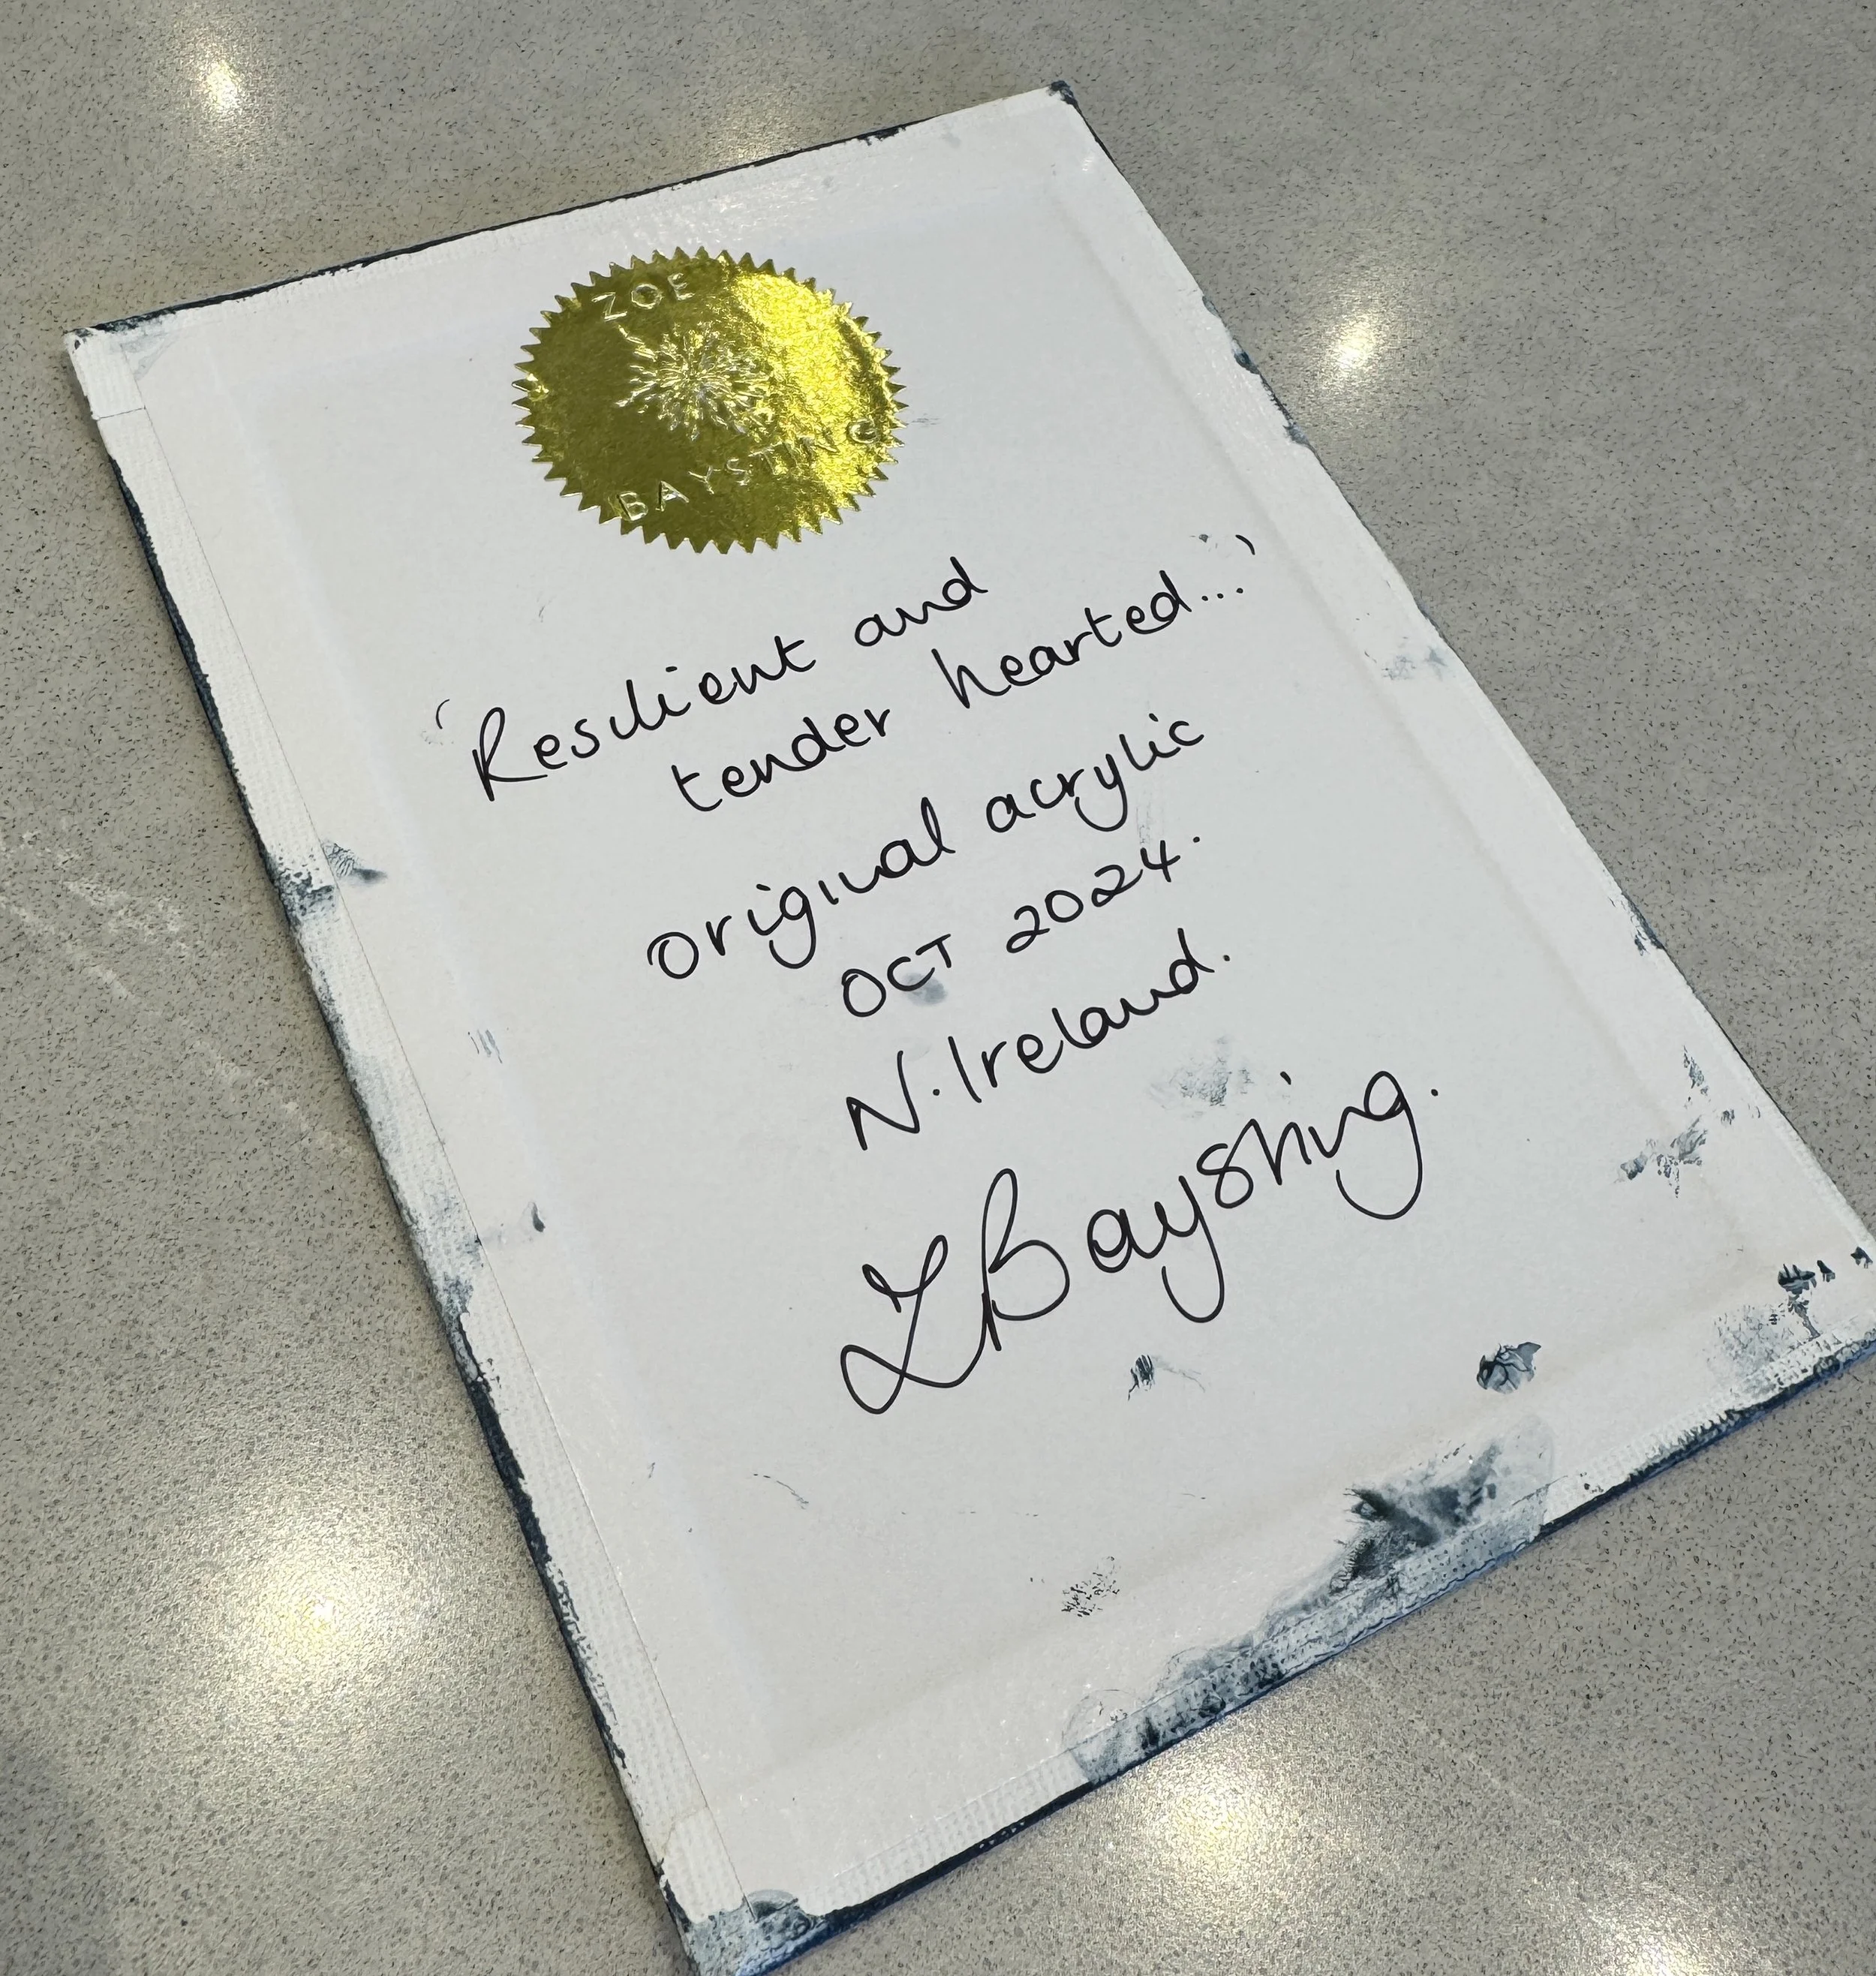 ZOE
BAYSTING
'Resilient and
tender hearted...'
original acrylic
OCT 2024.
N. Ireland.
ZBaysting.